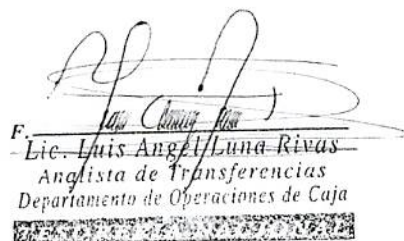 F.
Lic. Luis Angel Luna Rivas
Analista de Transferencias
Departamento de Operaciones de Caja